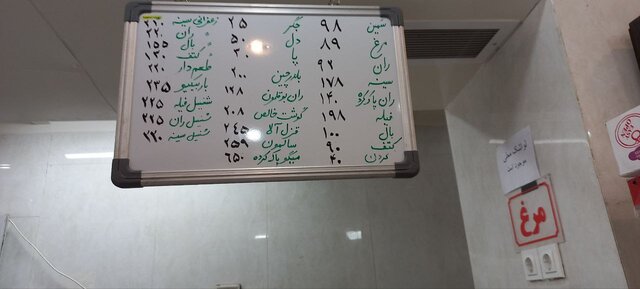 سین ۹۸
مرغ ۸۹
ران ۹۲
سینه ۱۷۸
ران پاک کرده ۱۴۰
فیله ۱۹۸
بال ۱۰۰
کتف ۹۰
گردن ۴۰
جگر ۲۵
دل ۵۰
پا ۳۰
بلدرچین ۲۰۰
ران بوقلمون ۱۲۸
گوشت خالص ۲۰۸
قزل آلا ۲۴۵
سالمون ۲۵۹
میگو پاک کرده ۶۵۰
زعفرانی سینه ۲۱۰
ران ۲۲۰
بال ۱۵۵
کتف ۱۳۰
طعم دار ۲۲۰
باربیکیو ۲۳۵
شنیل فیله ۲۲۵
شنیل ران ۲۲۵
شنیل سینه ۲۲۰
موجود است
مرغ